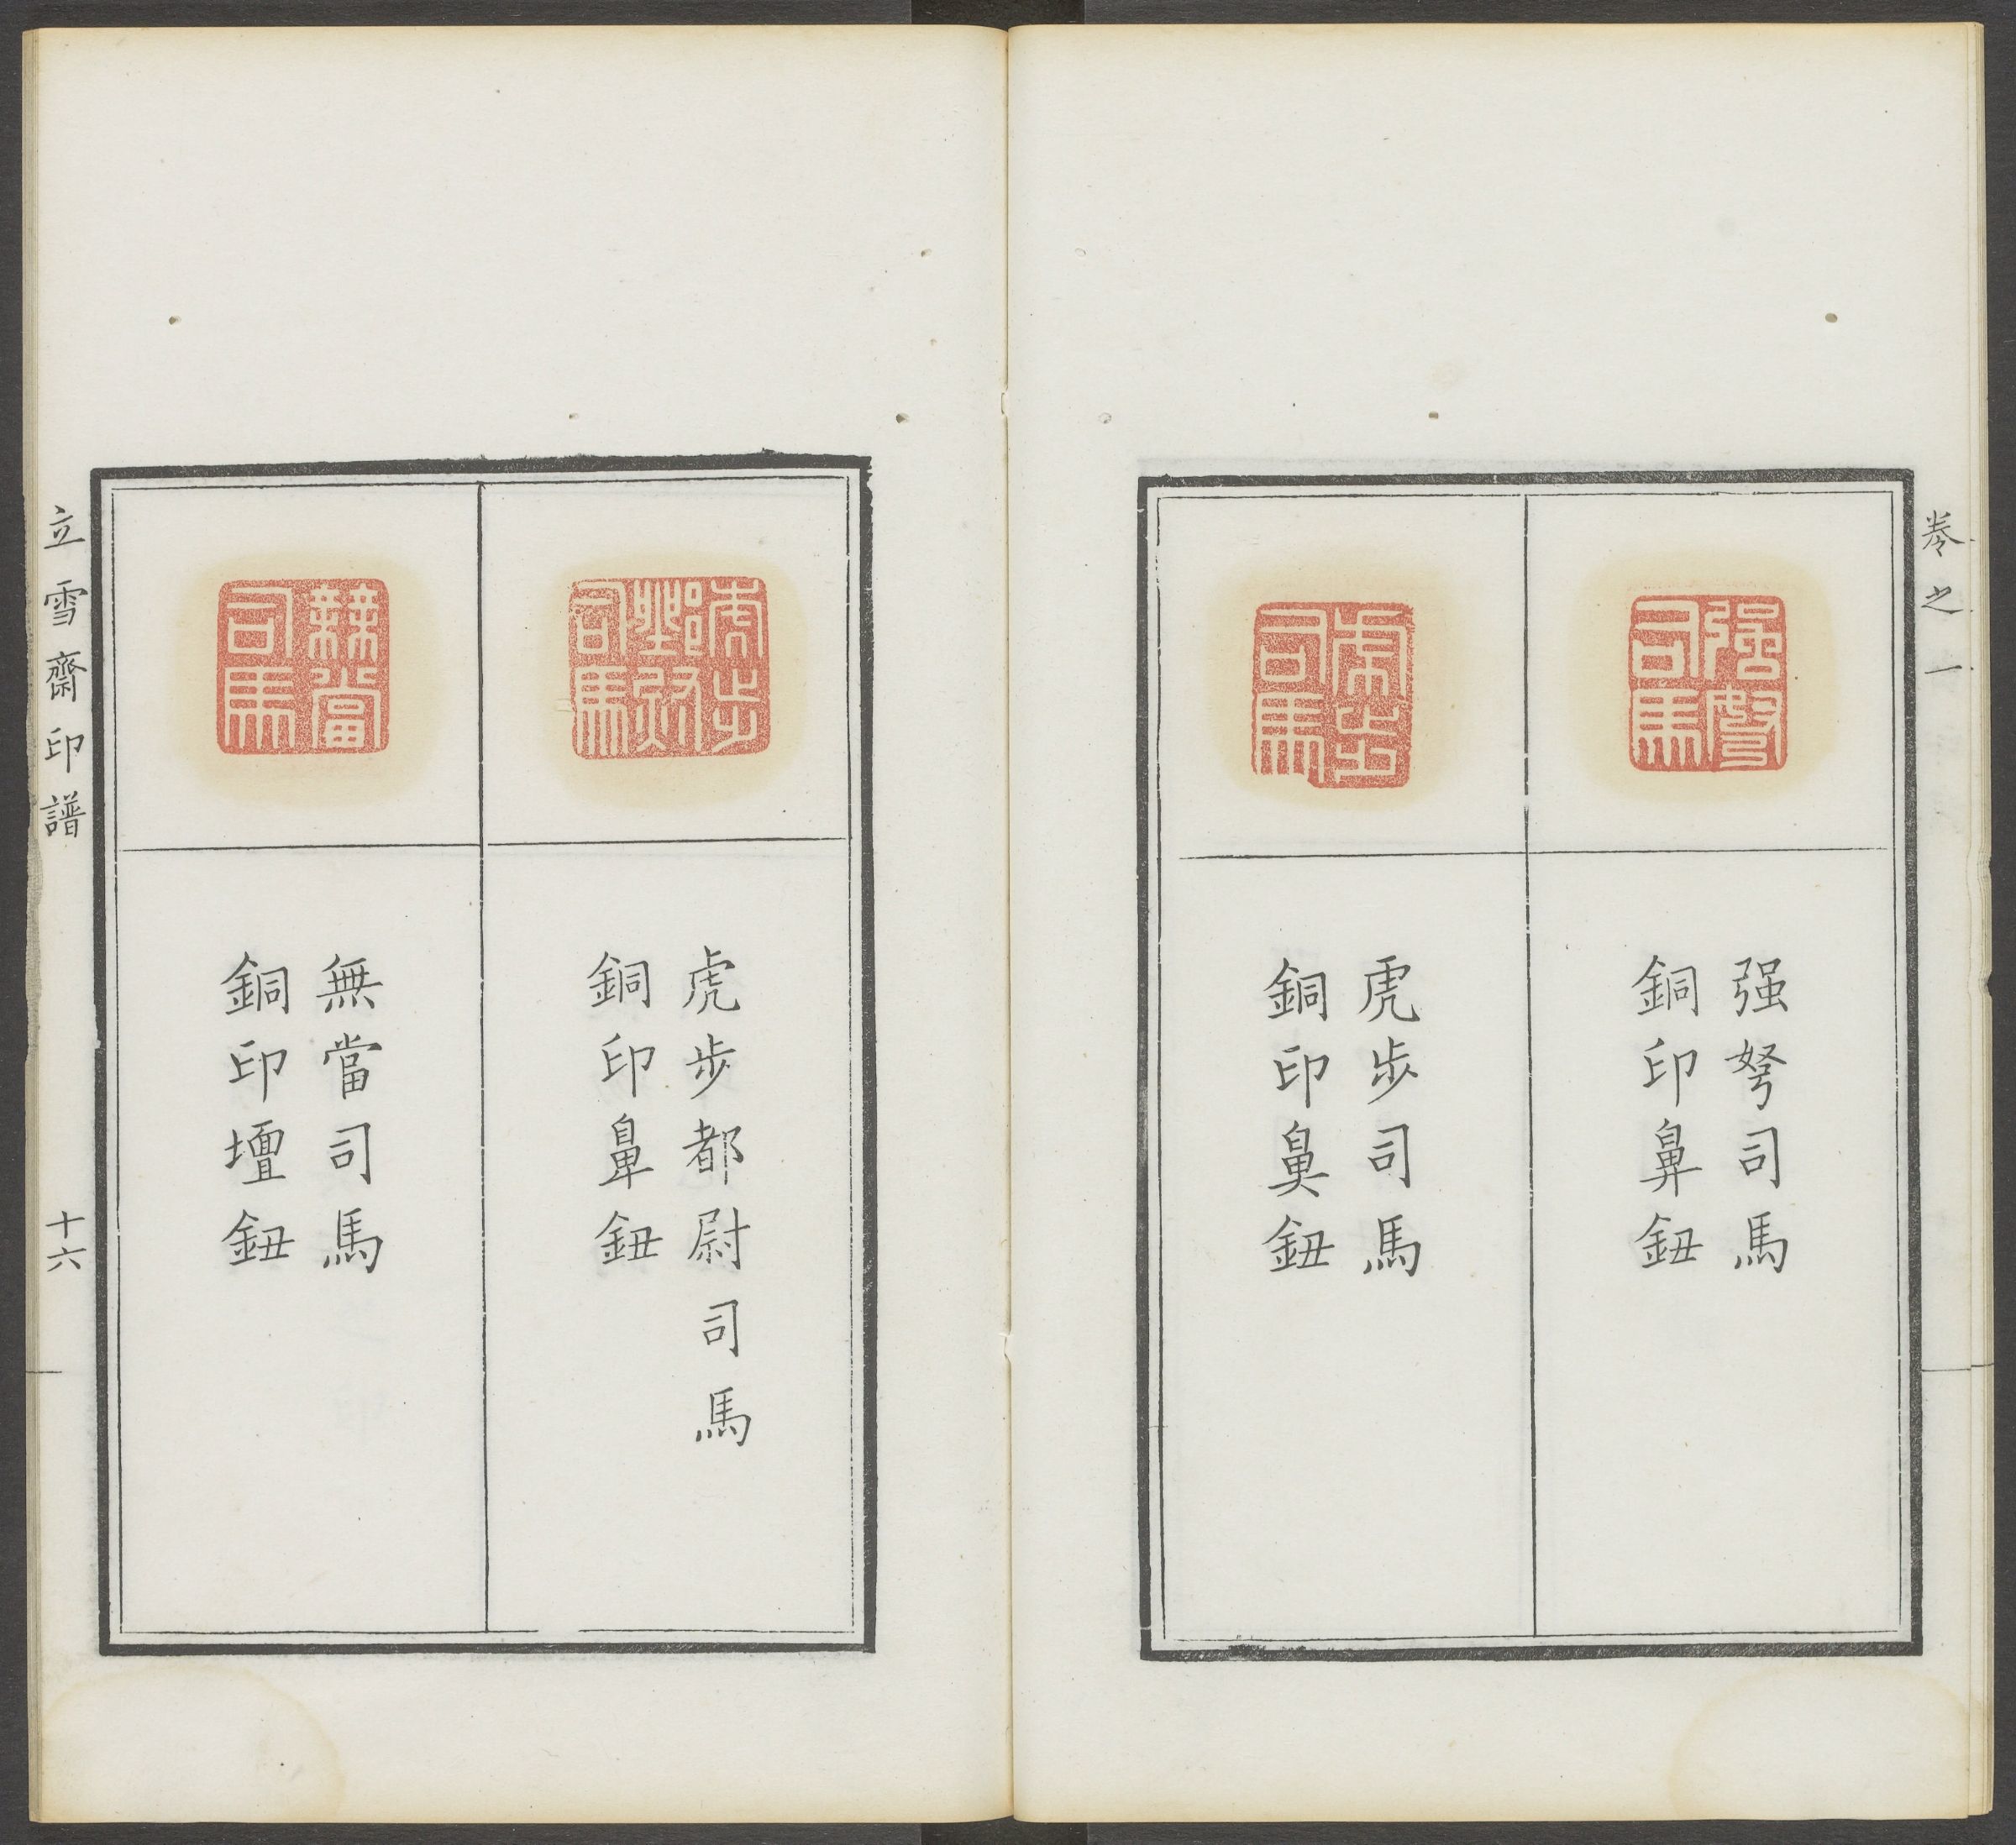 卷之一
强弩司馬
强弩司馬
銅印鼻鈕
虎步司馬
虎步司馬
銅印鼻鈕
虎步都尉司馬
虎步都尉司馬
銅印鼻鈕
無當司馬
無當司馬
銅印壇鈕
立雪齋印譜
十六